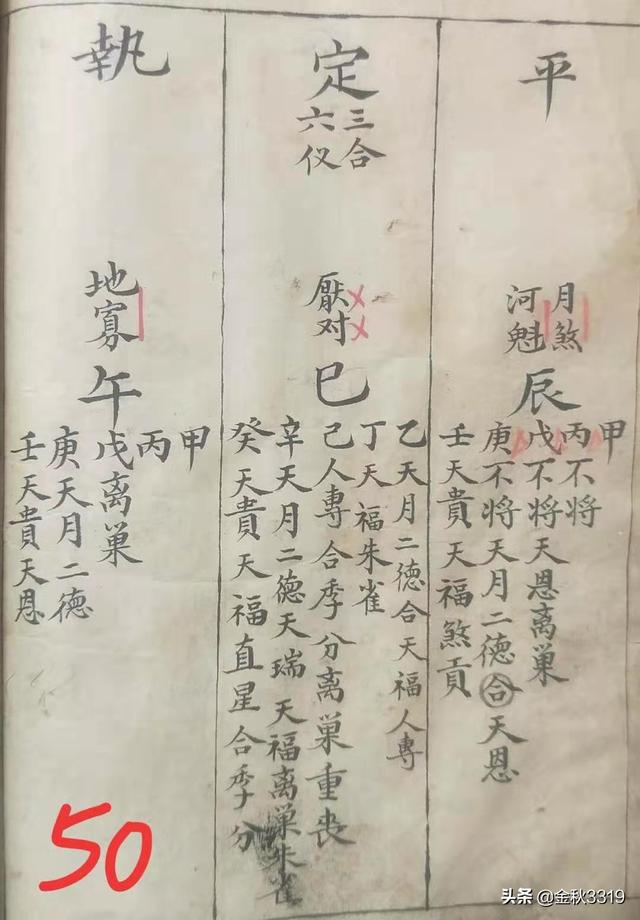 平
月煞
河魁
辰
甲
丙不将
戊不将天恩离巢
庚不将天月二德合天恩
壬天貴天福煞貢
定
三合
六仪
厭对
巳
乙天月二德合天福人專
丁天福朱雀
己人專合季分离巢重丧
辛天月二德天瑞天福离巢朱雀
癸天貴天福直星合季分
執
地寡
午
甲
丙
戊离巢
庚天月二德
壬天貴天恩
50
头条 @金秋3319